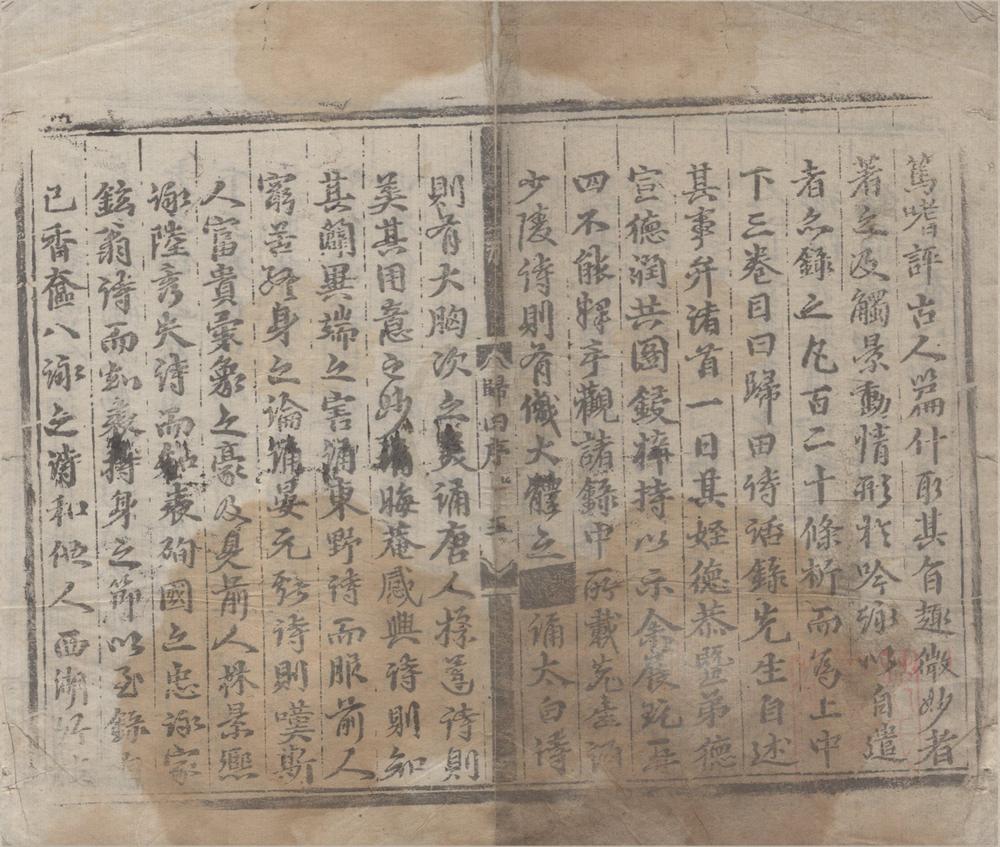 篤嗜評古人篇什取其旨趣微妙者
著之及觸景動情形於吟詠以自遣
者亦錄之凡百二十條析而爲上中
下三卷目曰歸田詩話錄先生自述
其事弁諸首一日其姪德恭暨弟德
宣德潤共圖鋟梓持以示余展玩再
四不能釋手觀諸錄中所載先生誦
少陵詩則有儀大體之誦太白詩
歸田序
則有大胸次之美誦唐人採蓮詩則
美其用意之妙誦晦菴感興詩則知
其蘭異端之害誦東野詩而服前人
窮苦終身之論誦晏元獻詩則嘆斯
人富貴氣象之豪及見前人林景熙
詠陸秀夫詩而知表殉國之忠詠家
鉉翁詩而知表持身之節以至錄
己香奩八詠之詩和他人西湖竹